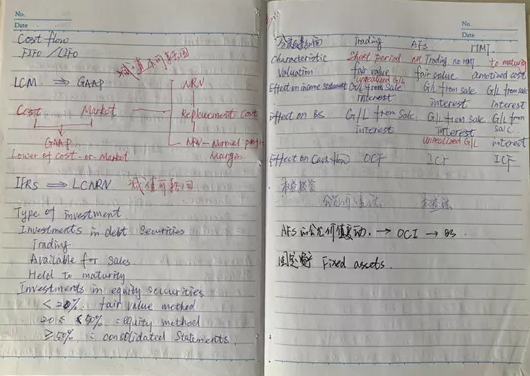 No.
Date
Cost flow
FIFO / LIFO
减值可转回
LCM ⇒ GAAP
NRV
Cost Market
Replacement cost
GAAP
NRV - Normal profit Margin
Lower of Cost-or-Market
IFRS ⇒ LCNRV 减值可转回
Type of investment
Investments in debt Securities
Trading
Available for Sales
Held to maturity
Investments in equity securities
< 20% fair value method
20% ≤ 50% = equity method
≥50% = consolidated Statements
No.
Date
Trading AFS HTM
Characteristic Short period not Trading no HTM to maturity
Valuation fair value fair value amotized cost
unrealized G/L
Effect on income statement G/L from Sale G/L from Sale G/L from Sale
interest interest interest
Effect on BS G/L from Sale G/L from Sale G/L from Sale
Interest interest interest
unrealized G/L
Effect on Cash flow OCF ICF ICF
AFS 公允价值变动 → OCI → BS.
固定资产 Fixed assets.